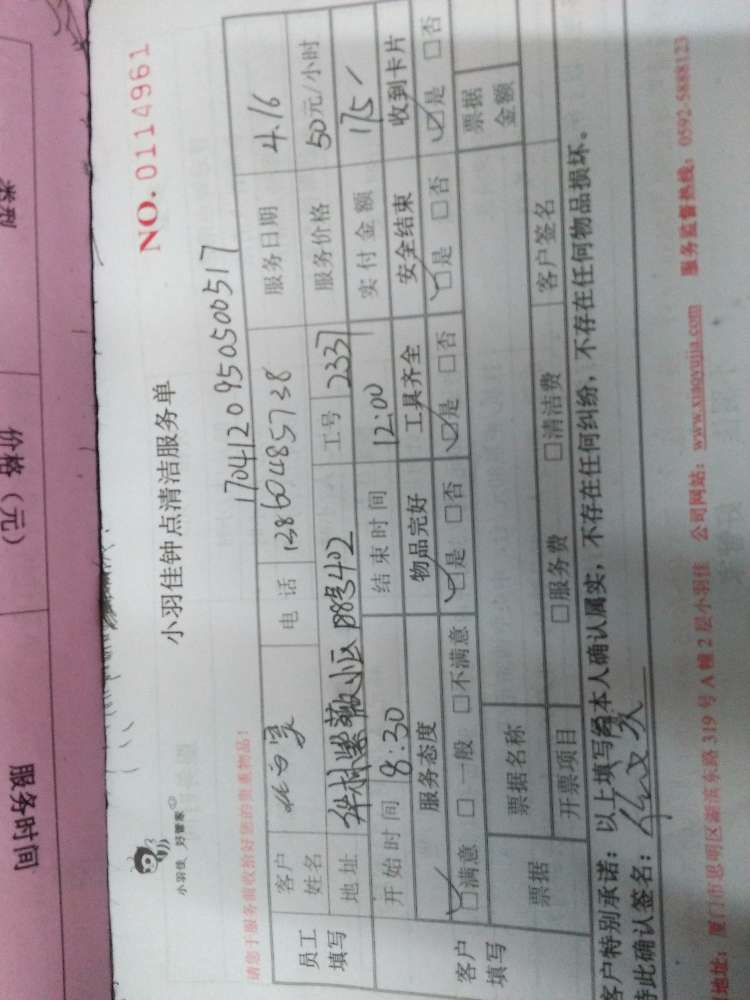 类型
价格（元）
服务时间
NO.0114961
小羽佳钟点清洁服务单
小羽佳 好管家
请您于服务前收拾好您的贵重物品！
1704120950500517
员工填写 客户姓名 电话 13860485738 服务日期 4.16
地址 华林紫薇小区 B8号402 工号 2337 服务价格 50元/小时
开始时间 8:30 结束时间 12:00 实付金额 175
客户填写 服务态度 物品完好 工具齐全 安全结束 收到卡片
☑满意 □一般 □不满意 ☑是 □否 ☑是 □否 ☑是 □否 ☑是 □否
票据 票据名称 票据金额
开票项目 □服务费 □清洁费 客户签名
客户特别承诺：以上填写经本人确认属实，不存在任何纠纷，不存在任何物品损坏。
特此确认签名：
地址：厦门市思明区湖滨东路319号A幢2层小羽佳 公司网站：www.xiaoyujia.com 服务监督热线：0592-5888123